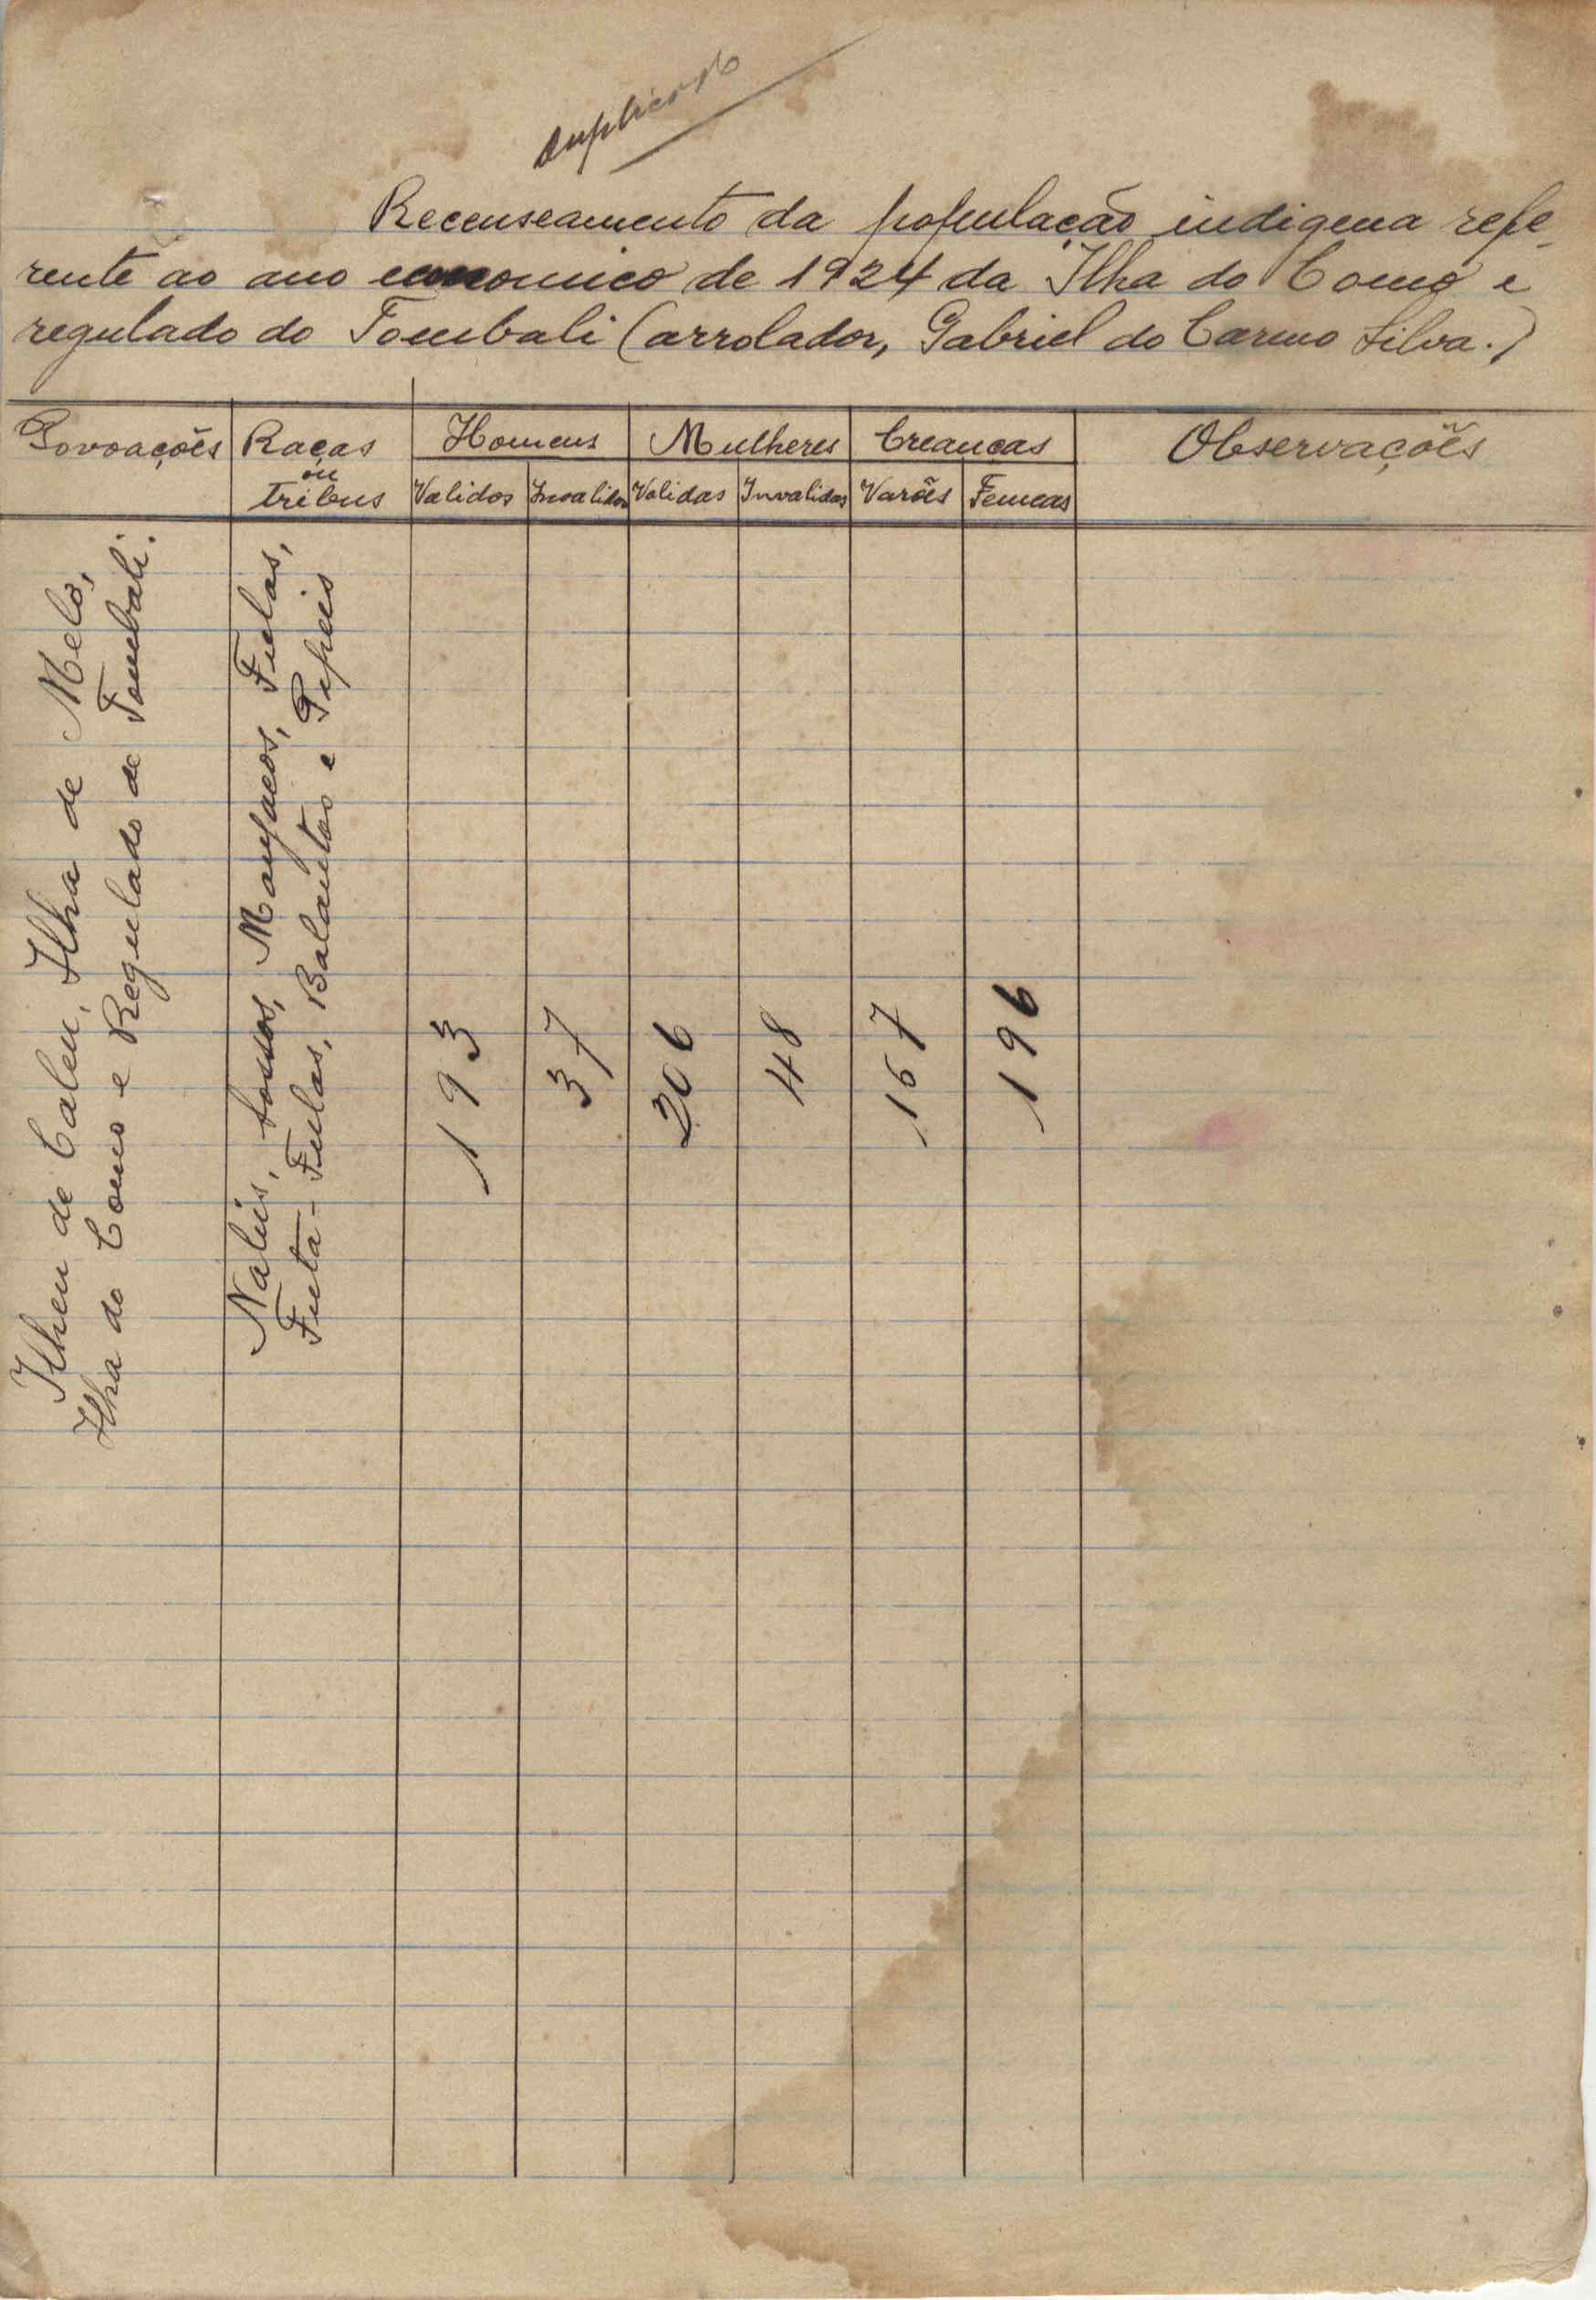 Duplicado
Recenseamento da população indigena refe-
rente ao ano economico de 1924 da Ilha do Como e
regulado do Tombali (arrolador, Gabriel do Carmo Silva.)
Povoações Raças Homens Mulheres Creanças Observações
ou
tribus Validos Invalidos Validas Invalidas Varões Femeas
Ilheu de Caleu, Ilha de Melo,
Ilha do Como e Regulado de Tombali.
Nalús, Sossos, Manjacos, Fulas,
Futa-Fulas, Balantas e Papeis
193
37
206
48
167
196